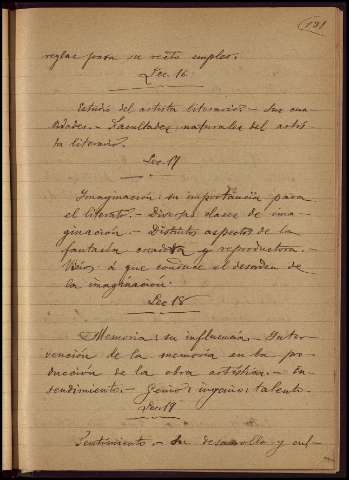 131
reglas para su recto empleo.
Lec. 16
Estudio del artista literario. - Sus cua-
lidades. - Facultades naturales del artis-
ta literario.
Lec. 17
Imaginación: su importancia para
el literato. - Diversas clases de ima-
ginación. - Distintos aspectos de la
fantasía creadora y reproductora. -
Vicios á que conduce el desorden de
la imaginación.
Lec. 18
Memoria: su influencia. - Inter-
vención de la memoria en la pro-
ducción de la obra artística. - En-
tendimiento. - Genio: ingenio: talento.
Lec. 19
Sentimiento. - Su desarrollo y cul-